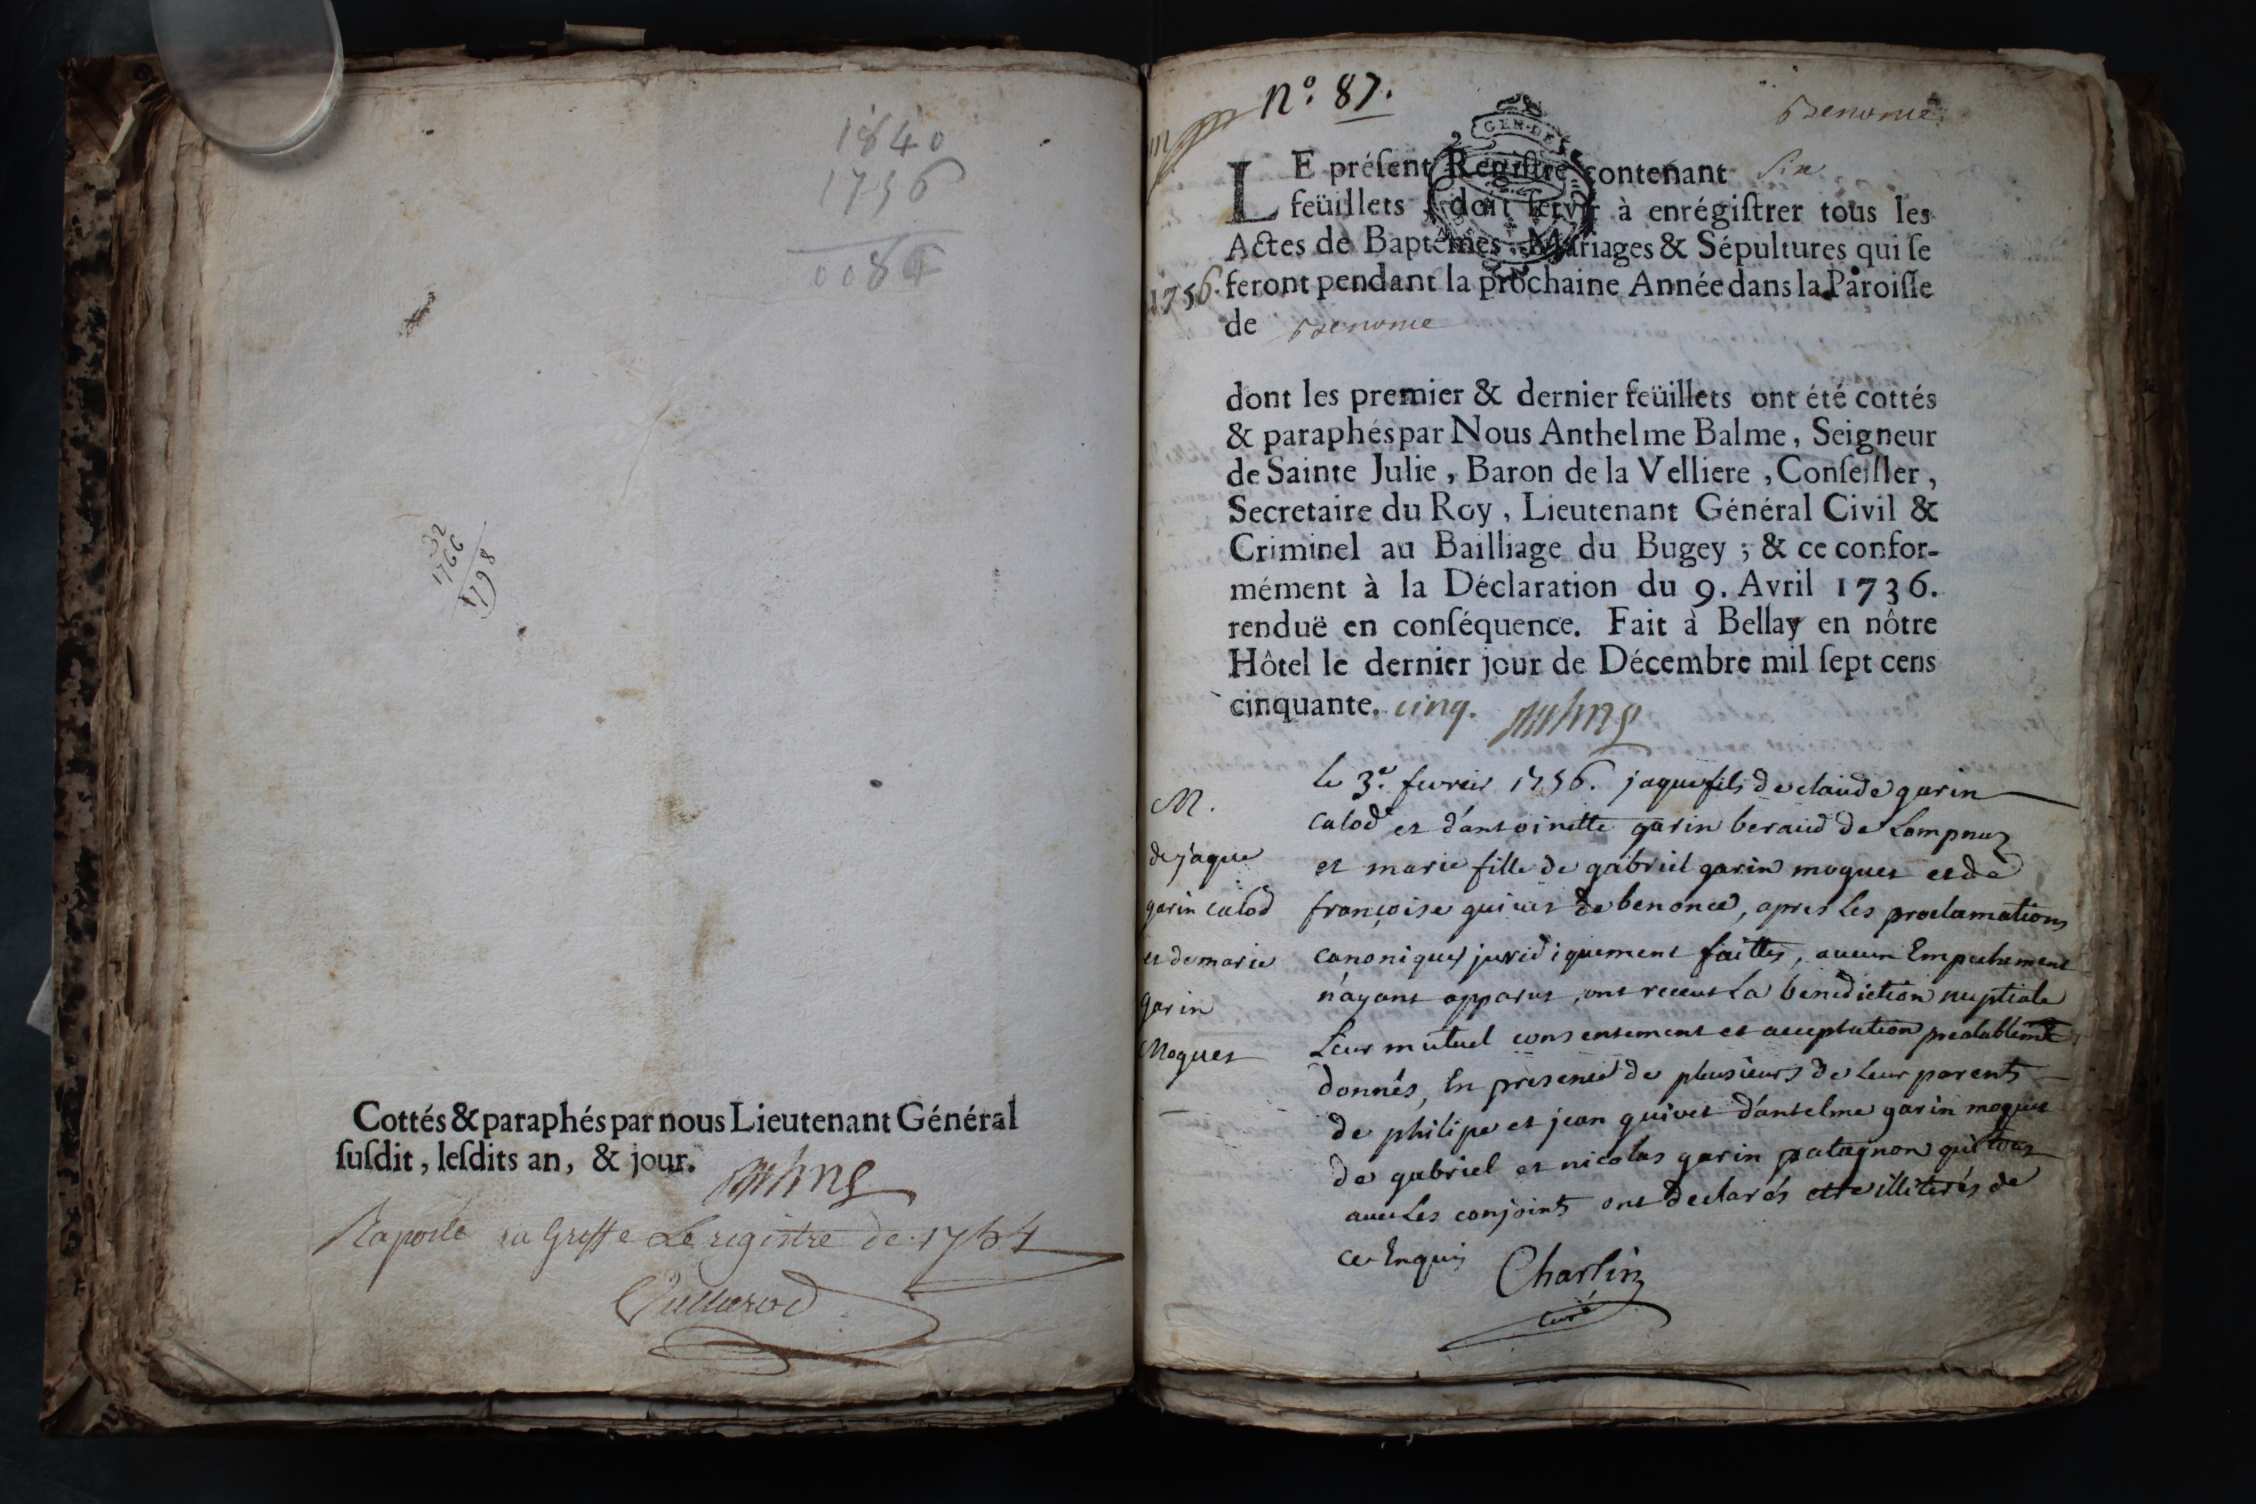 1840
1756
0084
32
1766
1798
Cottés & paraphés par nous Lieutenant Général
ſuſdit, leſdits an, & jour.
Raporté au Greffe Le registre de 1754
nº. 87.
Benonce
GEN. DE
LE préſent Regiſtre contenant Six
feüillets, doit ſervir à enrégiſtrer tous les
Actes de Baptêmes, Mariages & Sépultures qui ſe
1756. feront pendant la prochaine Année dans la Paroiſſe
de Benonce
dont les premier & dernier feüillets ont été cottés
& paraphés par Nous Anthelme Balme, Seigneur
de Sainte Julie, Baron de la Velliere, Conſeiller,
Secretaire du Roy, Lieutenant Général Civil &
Criminel au Bailliage du Bugey; & ce confor-
mément à la Déclaration du 9. Avril 1736.
renduë en conſéquence. Fait à Bellay en nôtre
Hôtel le dernier jour de Décembre mil ſept cens
cinquante. cinq.
M.
de jaque
garin calod
et de marie
garin
Moguet
le 3e. fevrier 1756. jaque fils de claude garin
calod et d'antoinette garin beraud de Lompnaz
et marie fille de gabriel garin moguet et de
françoise quivet de benonce, apres les proclamations
canoniques juridiquement faittes, aucun Empechement
n'ayant apparut, ont receut La benediction nuptiale
Leur mutuel consentement et acceptation prealablemt
donnés, En presence de plusieurs de Leur parents
de philipe et jean quivet d'antelme garin moguet
de gabriel et nicolas garin patagnon qui tous
avec Les conjoints ont declarés etre illiterés de
ce Enquis
Charlin
curé